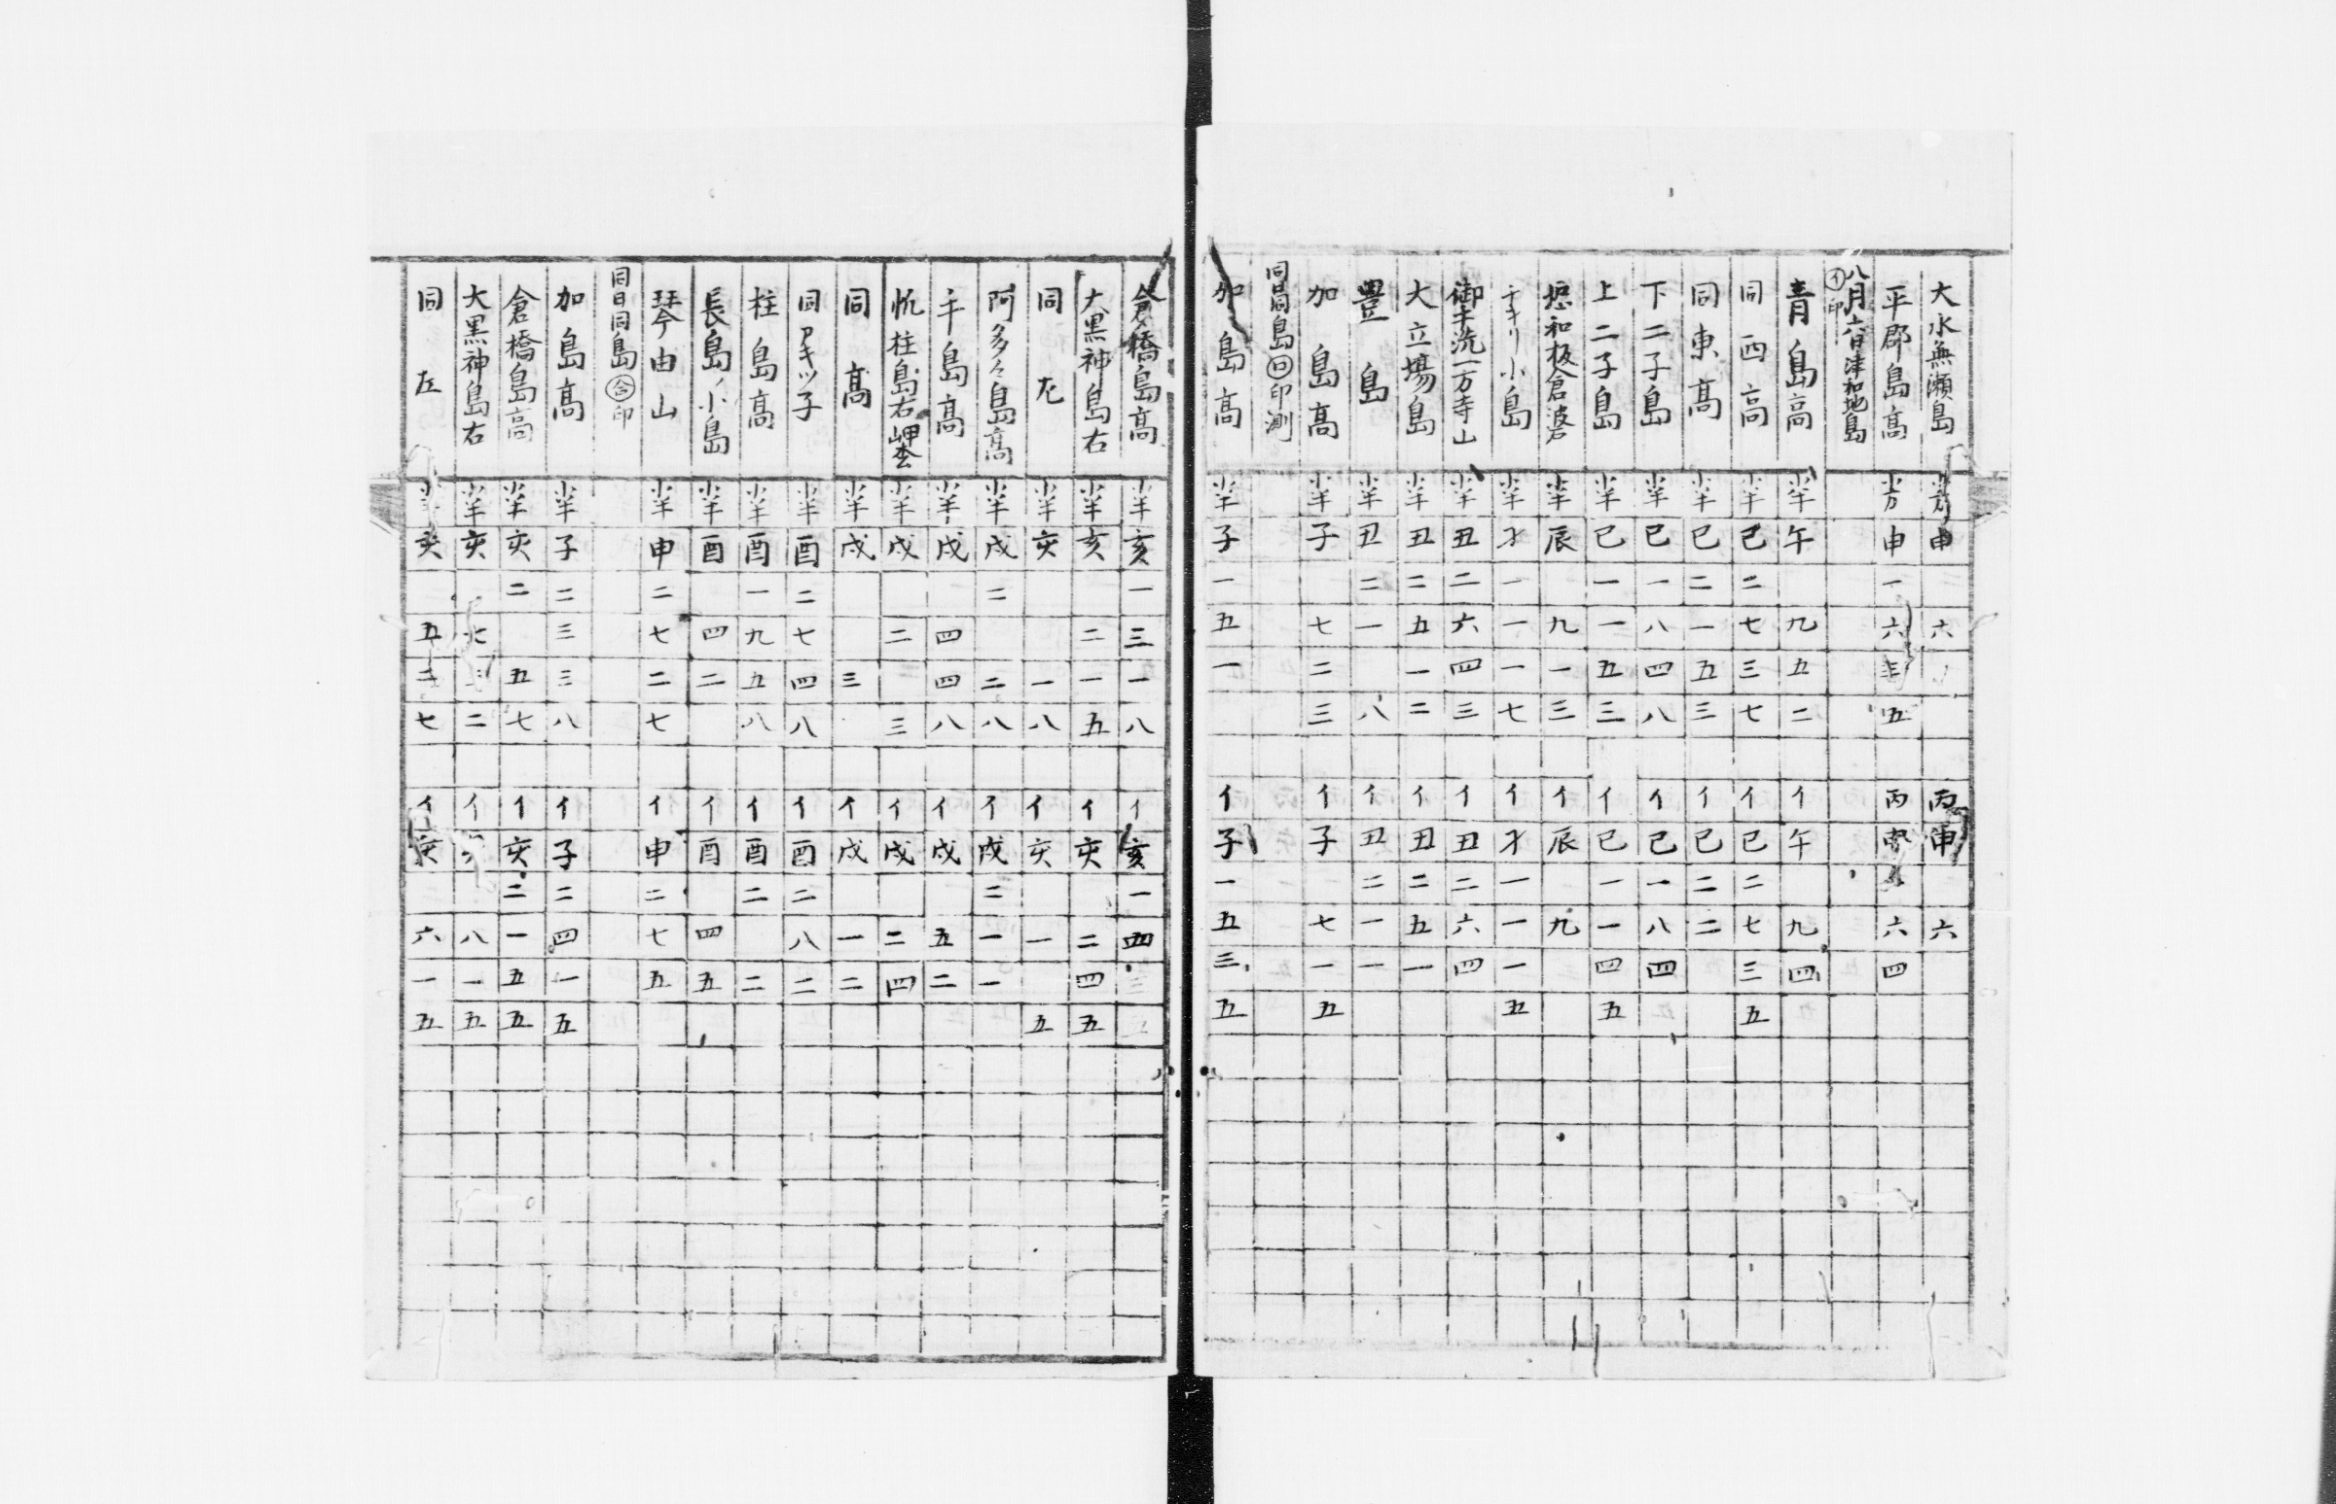 大水無瀬島 申 六 丙申 六
平郡島高 申 一 六 三 五 丙 六 四
八月六日津和地島 イ印
青島高 半 午 九 五 二 イ 午 九 四
同西高 半 巳 二 七 三 七 イ 巳 二 七 三 五
同東高 半 巳 二 一 五 三 イ 巳 二 二
下二子島 半 巳 一 八 四 八 イ 巳 一 八 四
上二子島 半 巳 一 一 五 三 イ 巳 一 一 四 五
和板倉婆 半 辰 九 一 三 イ 辰 九
チキリ小島 半 才 一 一 一 七 イ 才 一 一 一 五
御手洗一方寺山 半 丑 二 六 四 三 イ 丑 二 六 四
大立場島 半 丑 二 五 一 二 イ 丑 二 五 一
豊島 半 丑 二 一 八 イ 丑 二 一 一
加島高 半 子 七 二 三 イ 子 七 一 五
同日同島 回印測
加島高 半 子 一 五 一 イ 子 一 五 三 五
倉橋島高 半 亥 一 三 一 八 イ 亥 一 四 三 五
大黒神島右 半 亥 二 一 五 イ 亥 二 四 五
同左 半 亥 一 八 イ 亥 一 五
阿多々島高 半 戌 二 二 八 イ 戌 二 一 一
千島高 半 戌 四 四 八 イ 戌 五 二
柱島右岬 半 戌 二 三 イ 戌 二 四
同高 半 戌 三 イ 戌 一 二
同アキツ子 半 酉 二 七 四 八 イ 酉 二 八 二
柱島高 半 酉 一 九 五 八 イ 酉 二 二
長島ノ小島 半 酉 四 二 イ 酉 四 五
琴由山 半 申 二 七 二 七 イ 申 二 七 五
同日同島 合印
加島高 半 子 二 三 三 八 イ 子 二 四 一 五
倉橋島高 半 亥 二 五 七 イ 亥 二 一 五 五
大黒神島右 半 亥 七 三 二 イ 八 一 五
同左 亥 五 二 七 イ 亥 六 一 五